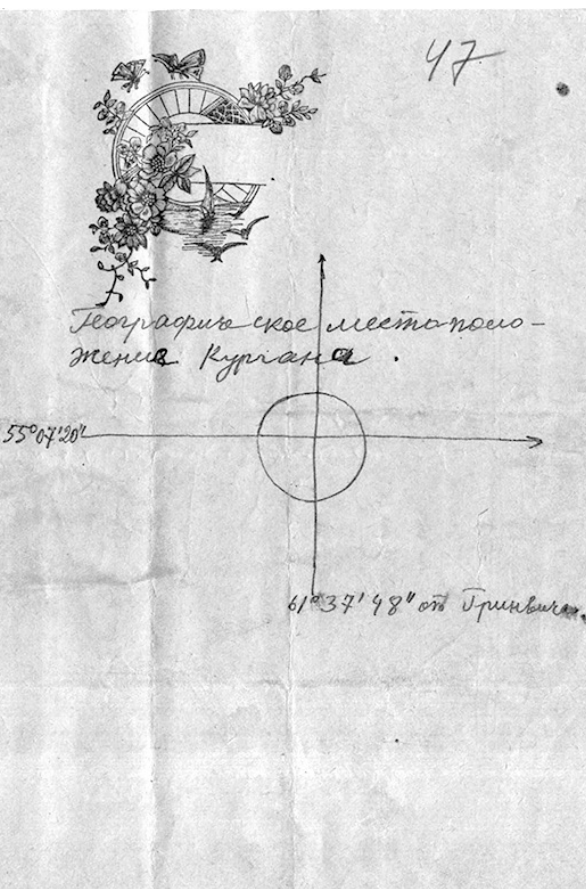 47
Географическое местополо-
жение Кургана.
55°07'20"
61°37'48" от Гринвича.